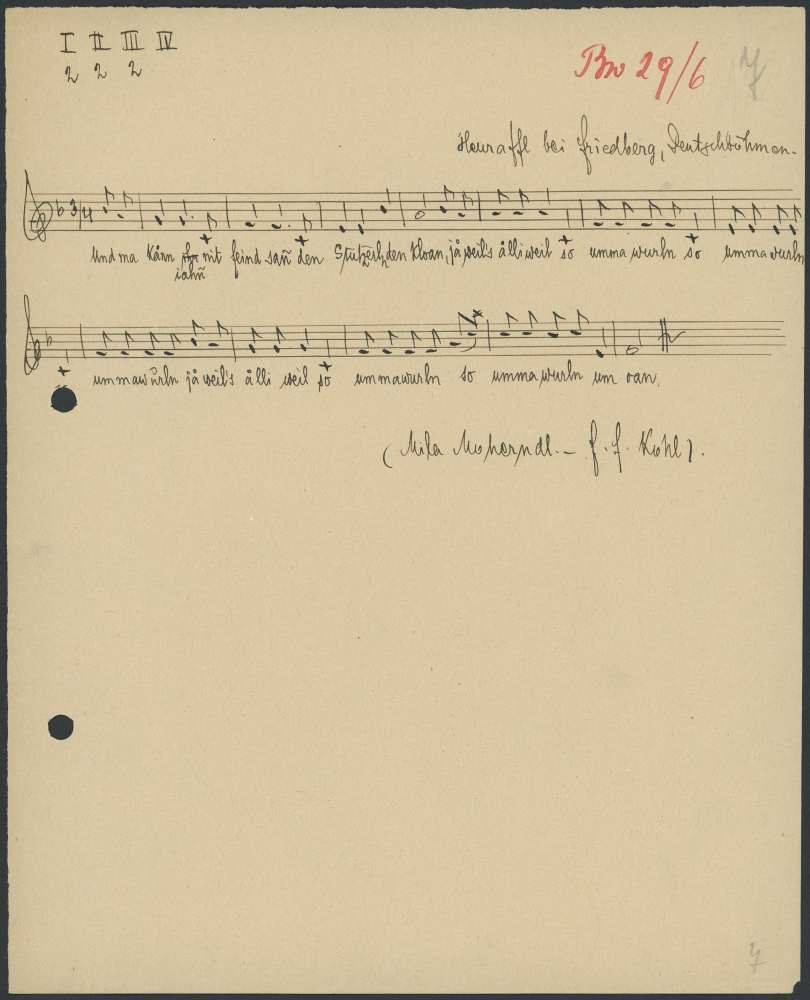 I II III IV
2 2 2
Bw 29/6 7
Heuraffl bei Friedberg, Deutschböhmen.
3/4
Und ma kånn nit feind sañ den Stutzerln den kloan, jå weil's ålliweil so umma wurln so umma wurln
iahñ
ummawurln jå weil's ålli weil so ummawurln so umma wurln um oan.
(Mila Moherndl. – F. F. Kohl).
7